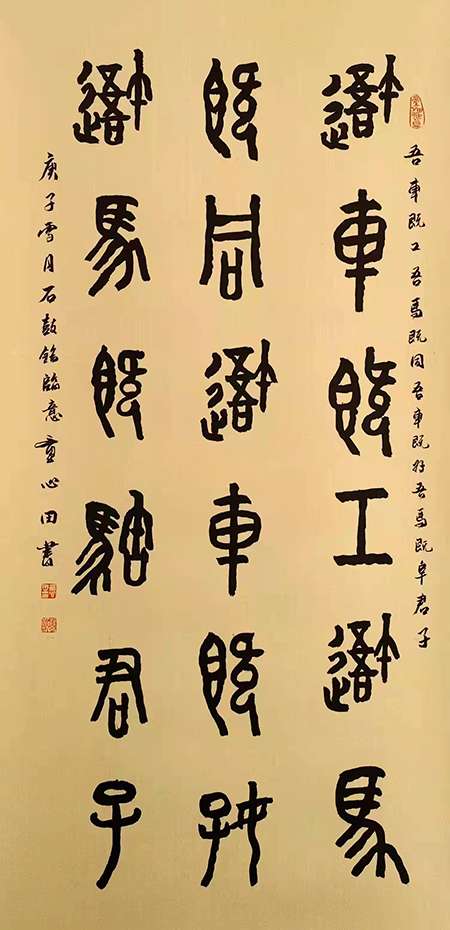 吾車既工吾馬既同吾車既好吾馬既阜君子
吾車既工吾馬
既同吾車既好
吾馬既騊君子
庚子雪月石鼓銘臨意心田書